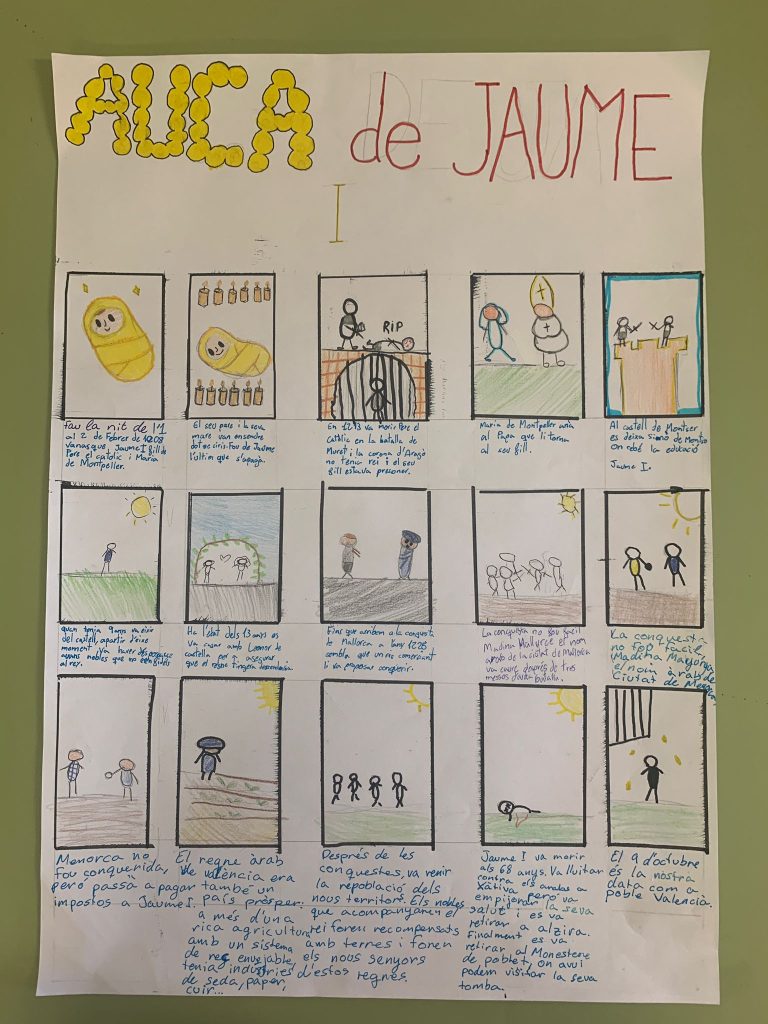 AUCA de JAUME
I
fou la nit de l'1
al 2 de Febrer de 1208
Jaume I fill de
Pere el catolic i Maria
de Montpeller.
El seu pare i la seva
mare van encendre
dotze ciris i fou de Jaume
l'últim que s'apagà.
RIP
En 1213 va morir Pere el
Catòlic en la batalla de
Muret i la corona d'Aragó
no tenia rei i el seu
fill estava presoner.
Maria de Montpeller
al Papa que li torna
al seu fill.
Al castell de Montser
es deixa signo de Montro
on rebé la educació
Jaume I.
quan tenia 9 anys va eixir
del castell, apartir d'eixe
moment, va haver de
alguns nobles que no
al rey.
Ha l'edat dels 13 anys es
va casar amb Leonor de
castella per a assegurar
que el regne tinguera descendencia
Fins que arribem a la conquesta
de Mallorca a l'any 1228
sembla que un ric comerciant
li va proposar conquerir.
La conquesta no fou facil
Madina Mallurca el nom
arab de la ciutat de Mallorca
va caure després de tres
messos d'dura batalla.
La conquesta
no fou facil,
Madina Mayurqa
el nom àrab de
Ciutat de
Menorca no
fou conquerida,
però passà a pagar
impostos a Jaume I.
El regne àrab
de valència era
també un
país pròsper.
a més d'una
rica agricultura
amb un sistema
de reg envejable,
tenia indústries
de seda, paper,
cuir...
Després de les
conquestes, va venir
la repoblació dels
nous territoris. Els nobles
que acompanyaren el
rei foren recompensats
amb terres i foren
els nous senyors
d'estos regnes.
Jaume I va morir
als 68 anys. Va lluitar
contra els arabs a
Xàtiva però va
empijorar la seva
salut i es va
retirar a alzira.
Finalment es va
retirar al Monestere
de poblet, on avui
podem visitar la seva
tomba.
El 9 d'octubre
és la nostra
data com a
poble Valencià.